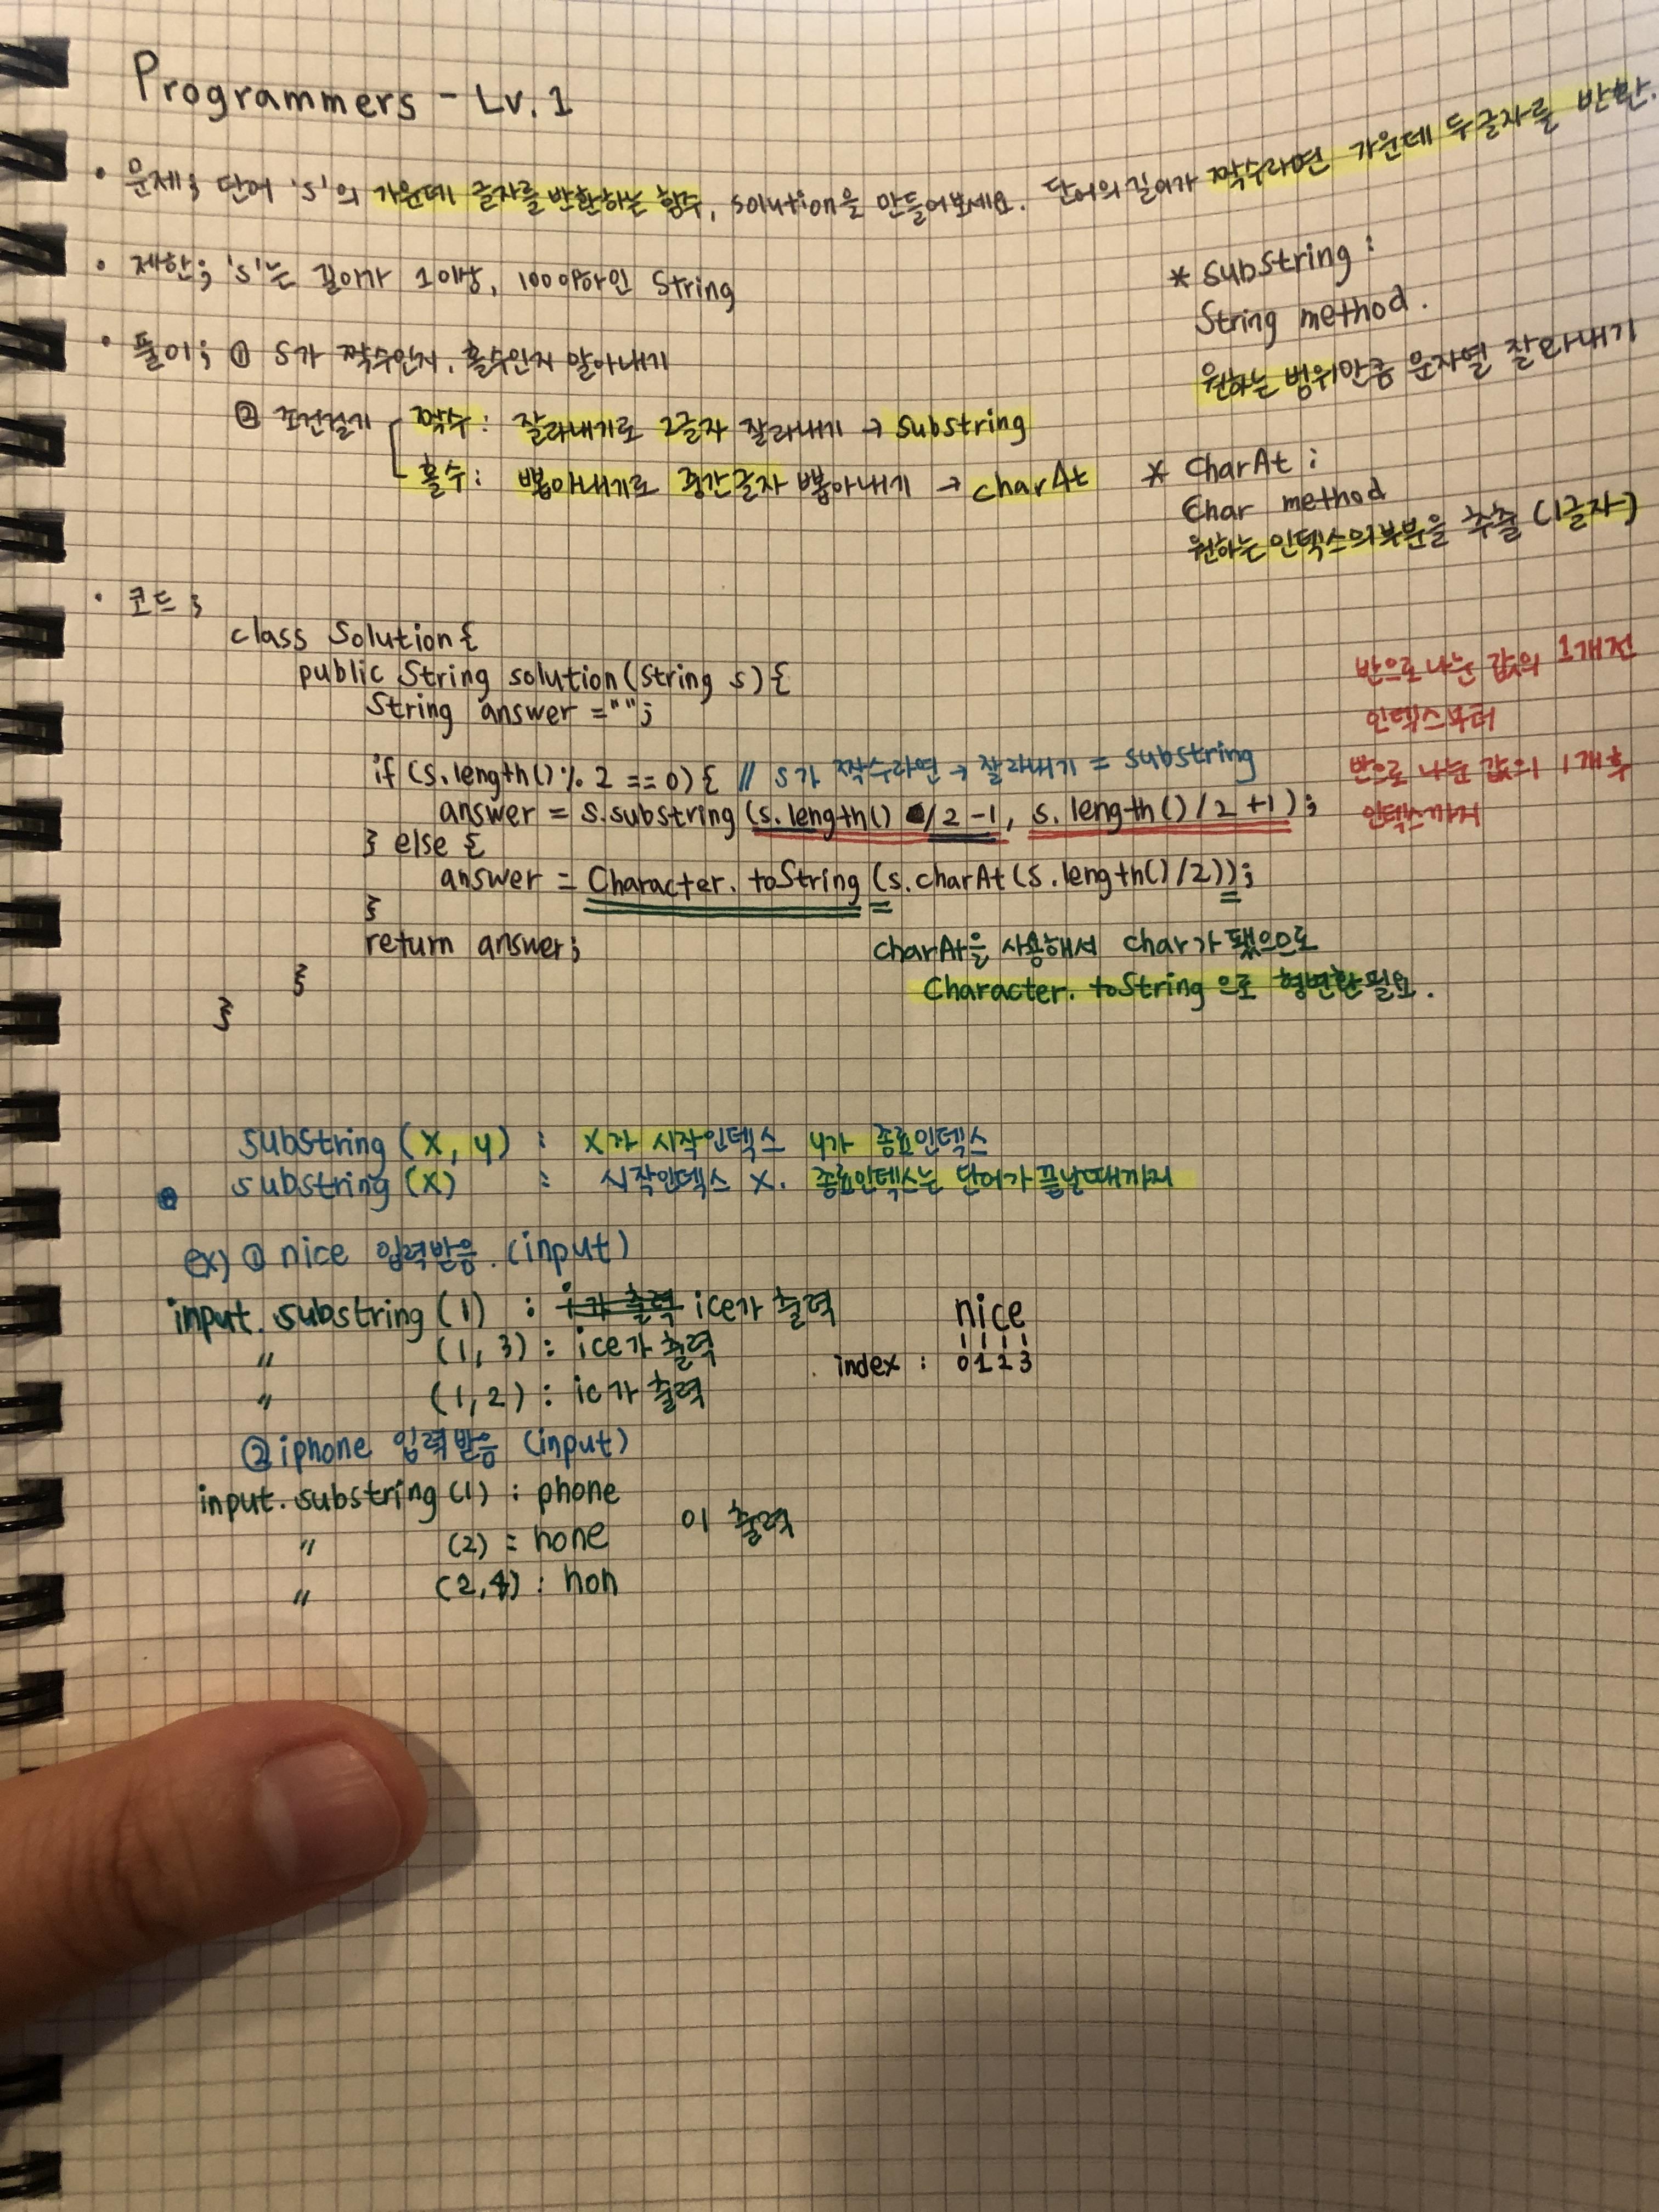 Programmers - Lv. 1
• 문제; 단어 's'의 가운데 글자를 반환하는 함수, solution을 만들어보세요. 단어의 길이가 짝수라면 가운데 두글자를 반환.
• 제한; 's'는 길이가 1이상, 100이하인 String
* substring :
String method.
원하는 범위만큼 문자열 잘라내기
• 풀이; ① s가 짝수인지, 홀수인지 알아내기
② 조건걸기
짝수: 잘라내기로 2글자 잘라내기 → substring
홀수: 뽑아내기로 중간글자 뽑아내기 → charAt
* CharAt :
Char method
원하는 인덱스의 부분을 추출 (1글자)
• 코드;
class Solution{
public String solution(String s){
String answer ="";
if (s.length() % 2 == 0){ // s가 짝수라면 → 잘라내기 = substring
answer = s.substring (s.length() /2 -1, s.length()/2 +1);
} else {
answer = Character. toString (s.charAt(s.length()/2));
}
return answer;
}
}
반으로 나눈 값의 1개전
인덱스부터
반으로 나눈 값의 1개후
인덱스까지
charAt을 사용해서 char가 됐으므로
Character. toString 으로 형변환 필요.
substring (x, y) : x가 시작인덱스 y가 종료인덱스
substring (x) : 시작인덱스 x. 종료인덱스는 단어가 끝날때까지
ex) ① nice 입력받음. (input)
input. substring (1) : i가 출력 ice가 출력
〃 (1, 3) : ice가 출력
〃 (1, 2) : ic가 출력
nice
index : 0123
② iphone 입력받음 (input)
input. substring (1) : phone
〃 (2) : hone 이 출력
〃 (2,4) : hon